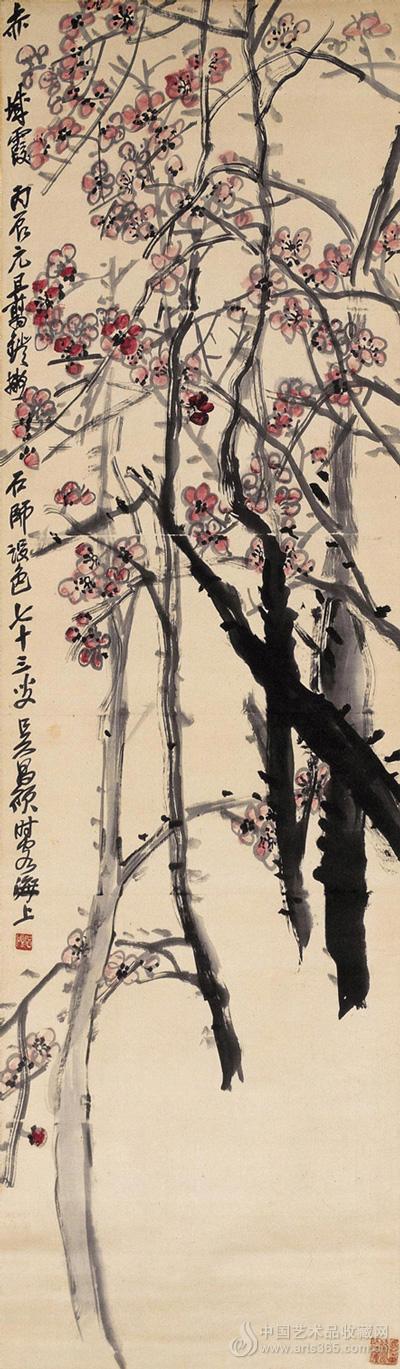 赤城霞 丙辰元旦翦鐙 石師設色 七十三叟 吳昌碩時客海上
中国艺术品收藏网
www.arts365.com